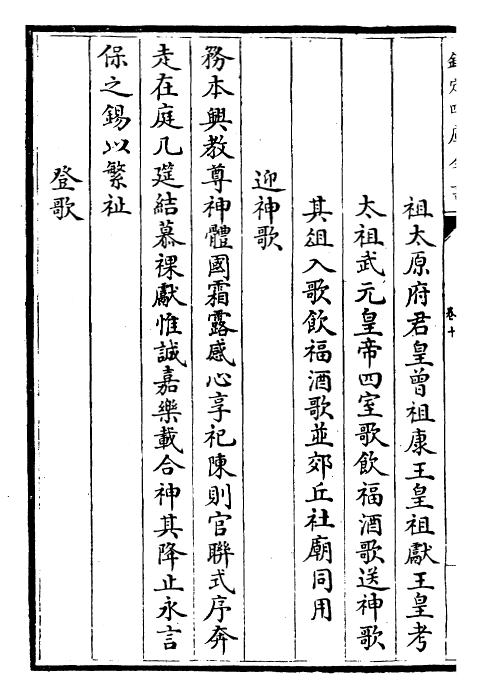 欽定四庫全書
卷十
祖太原府君皇曾祖康王皇祖獻王皇考
太祖武元皇帝四室歌飲福酒歌送神歌
其俎入歌飲福酒歌並郊丘社廟同用
迎神歌
務本興教尊神體國霜露感心享祀陳則官聯式序奔
走在庭几筵結慕祼獻惟誠嘉樂載合神其降止永言
保之錫以繁祉
登歌